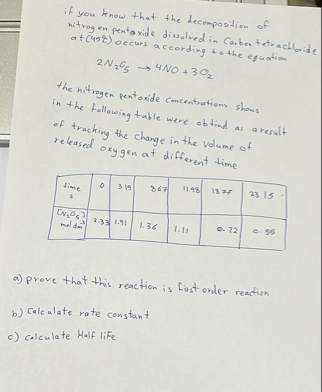 if you know that the decomposition of
nitrogen pentoxide dissolved in Carbon tetrachloride
at (49°) occurs according to the equation
2N₂O₅ → 4NO + 3O₂
the nitrogen pentoxide concentrations shows
in the following table were obtind as a result
of tracking the change in the volume of
released oxygen at different time
time s 0 319 867 1198 1877 2315
[N₂O₅] mol dm⁻³ 2.33 1.91 1.36 1.11 0.72 0.55
a) prove that this reaction is first order reaction
b) Calculate rate constant
c) Calculate Half life